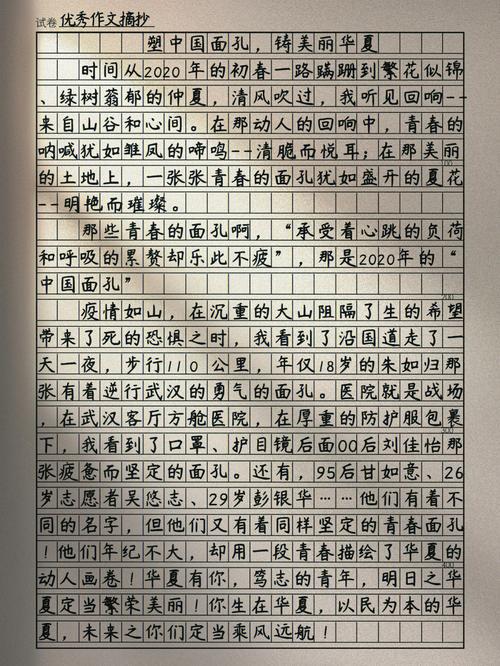 试卷 优秀作文摘抄
塑中国面孔，铸美丽华夏
时间从2020年的初春一路蹒跚到繁花似锦
、绿树蓊郁的仲夏，清风吹过，我听见回响--
来自山谷和心间。在那动人的回响中，青春的
呐喊犹如雏凤的啼鸣--清脆而悦耳；在那美丽
的土地上，一张张青春的面孔犹如盛开的夏花
--明艳而璀璨。
那些青春的面孔啊，“承受着心跳的负荷
和呼吸的累赘却乐此不疲”，那是2020年的“
中国面孔”
200
疫情如山，在沉重的大山阻隔了生的希望
带来了死的恐惧之时，我看到了沿国道走了一
天一夜，步行110公里，年仅18岁的朱如归那
张有着逆行武汉的勇气的面孔。医院就是战场
，在武汉客厅方舱医院，在厚重的防护服包裹
300
下，我看到了口罩、护目镜后面00后刘佳怡那
张疲惫而坚定的面孔。还有，95后甘如意、26
岁志愿者吴悠志、29岁彭银华……他们有着不
同的名字，但他们又有着同样坚定的青春面孔
！他们年纪不大，却用一段青春描绘了华夏的
400
动人画卷！华夏有你，笃志的青年，明日之华
夏定当繁荣美丽！你生在华夏，以民为本的华
夏，未来之你们定当乘风远航！